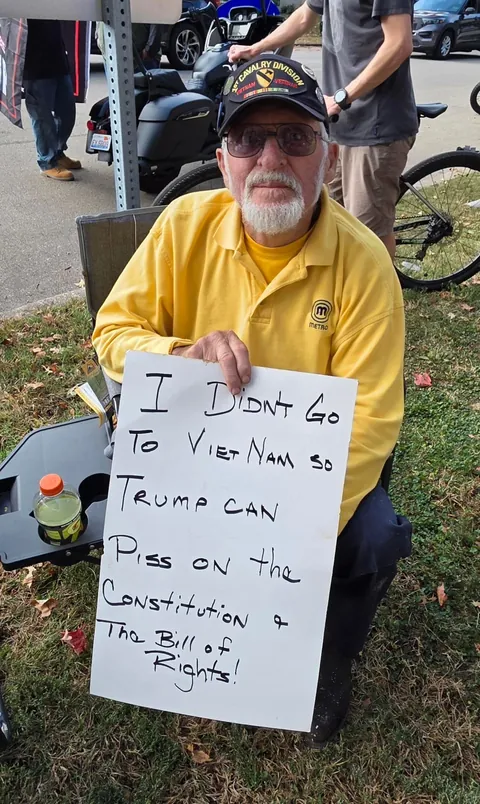 1ST CAVALRY DIVISION
VIETNAM VETERAN
METRO
I DIDNT GO
TO VIET NAM SO
TRUMP CAN
PISS ON the
CONSTITUTION &
The Bill of
Rights!